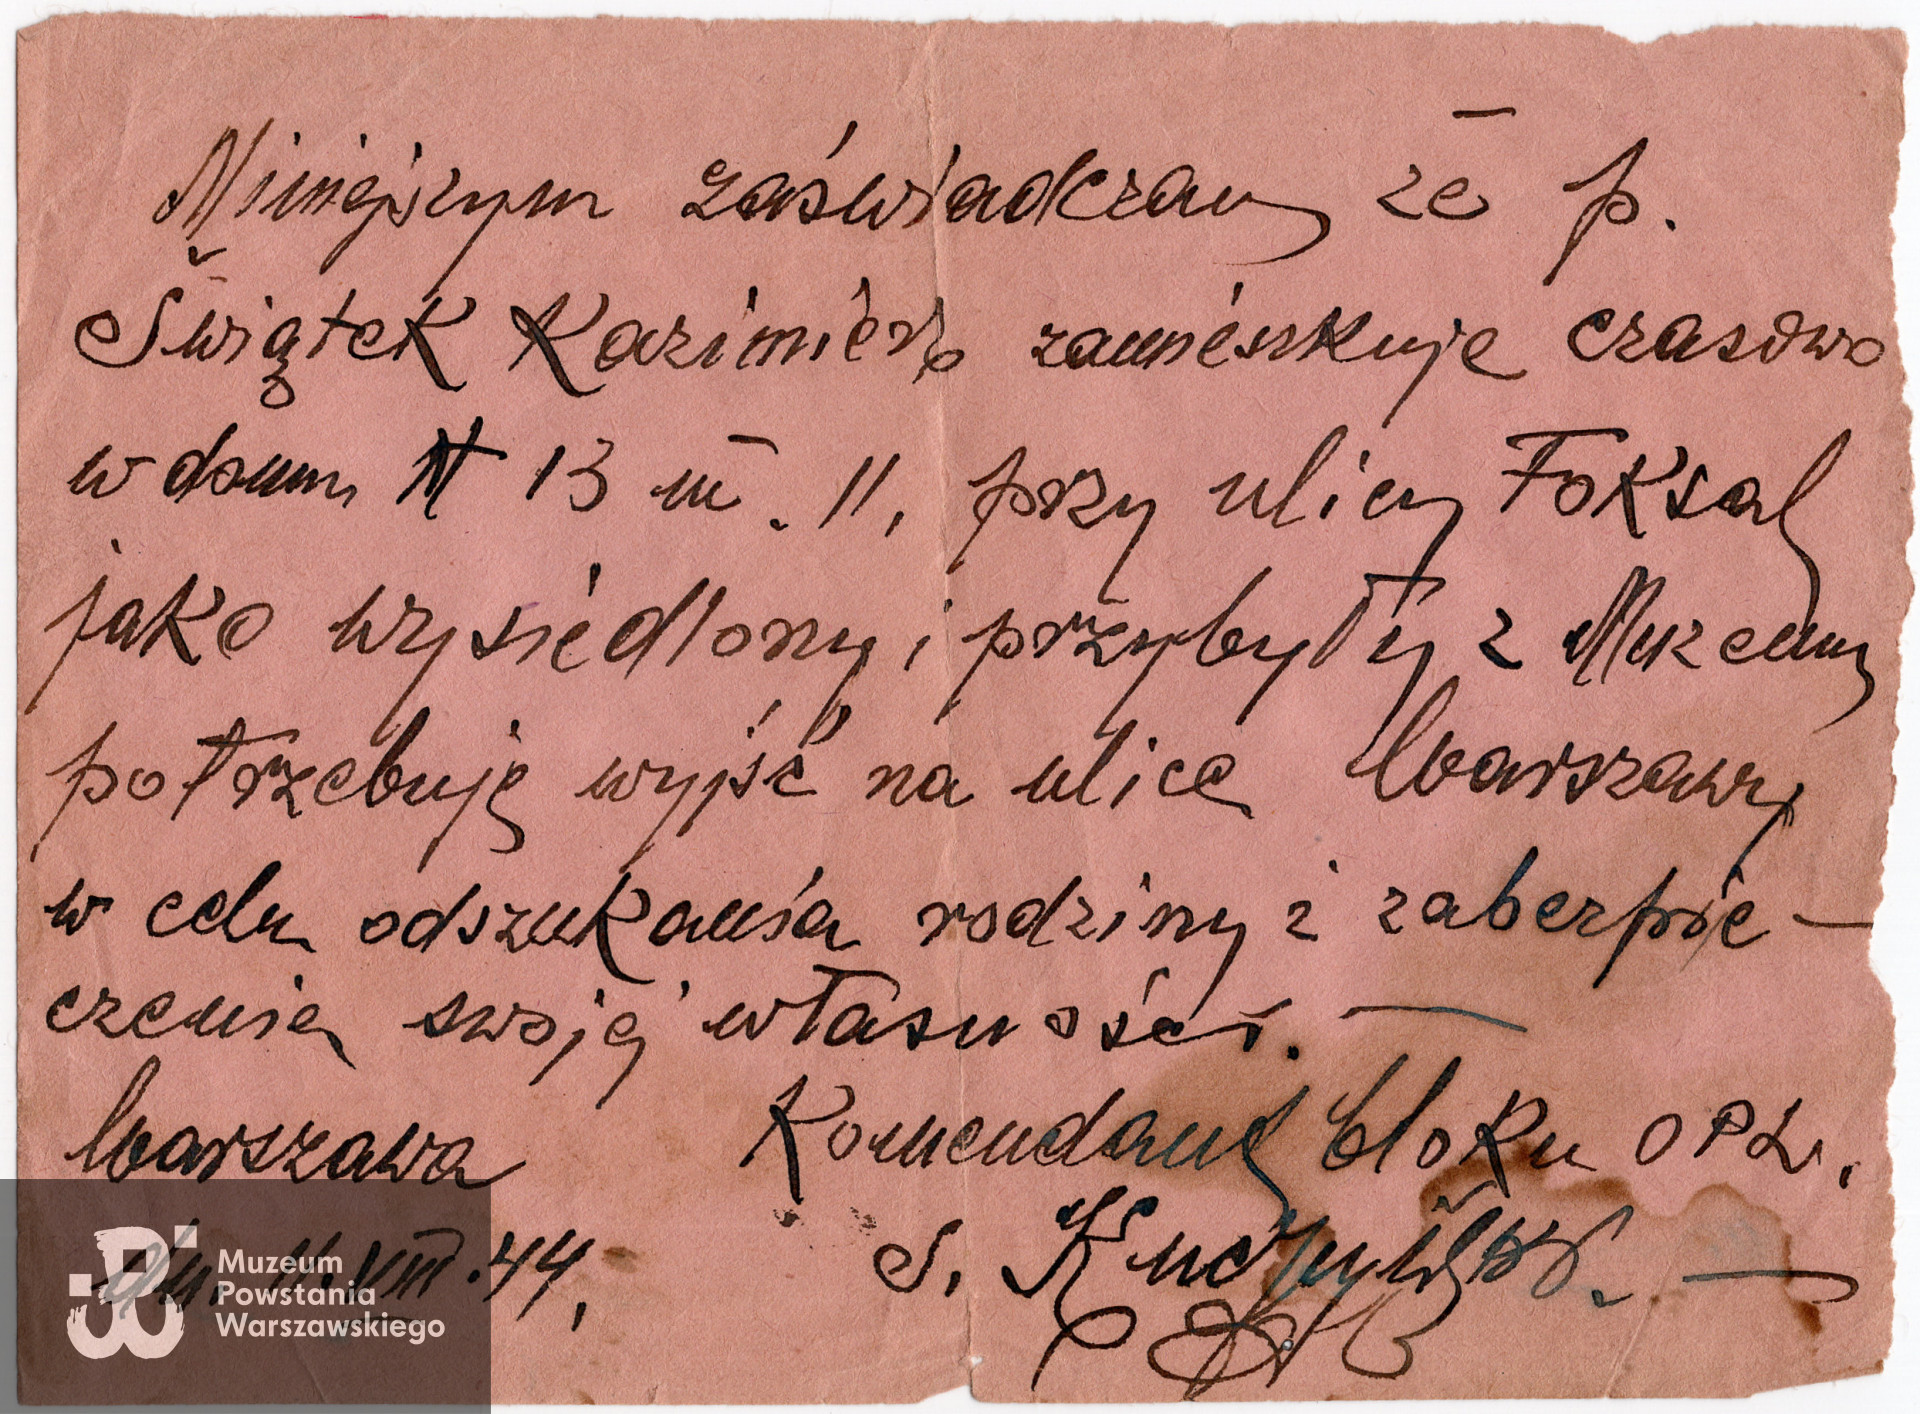 Niniejszym zaświadczam że p.
Świątek Kazimierz zamieszkuje czasowo
w domu N 13 m. 11, przy ulicy Foksal
jako wysiedlony i przybyły z Muzeum
potrzebuję wyjść na ulicę Warszawy
w celu odszukania rodziny i zabezpie-
czenia swojej własności. —
Warszawa Komendant bloku OPL.
dn. 11.VIII.44, S. Kuczyński. —
Muzeum
Powstania
Warszawskiego